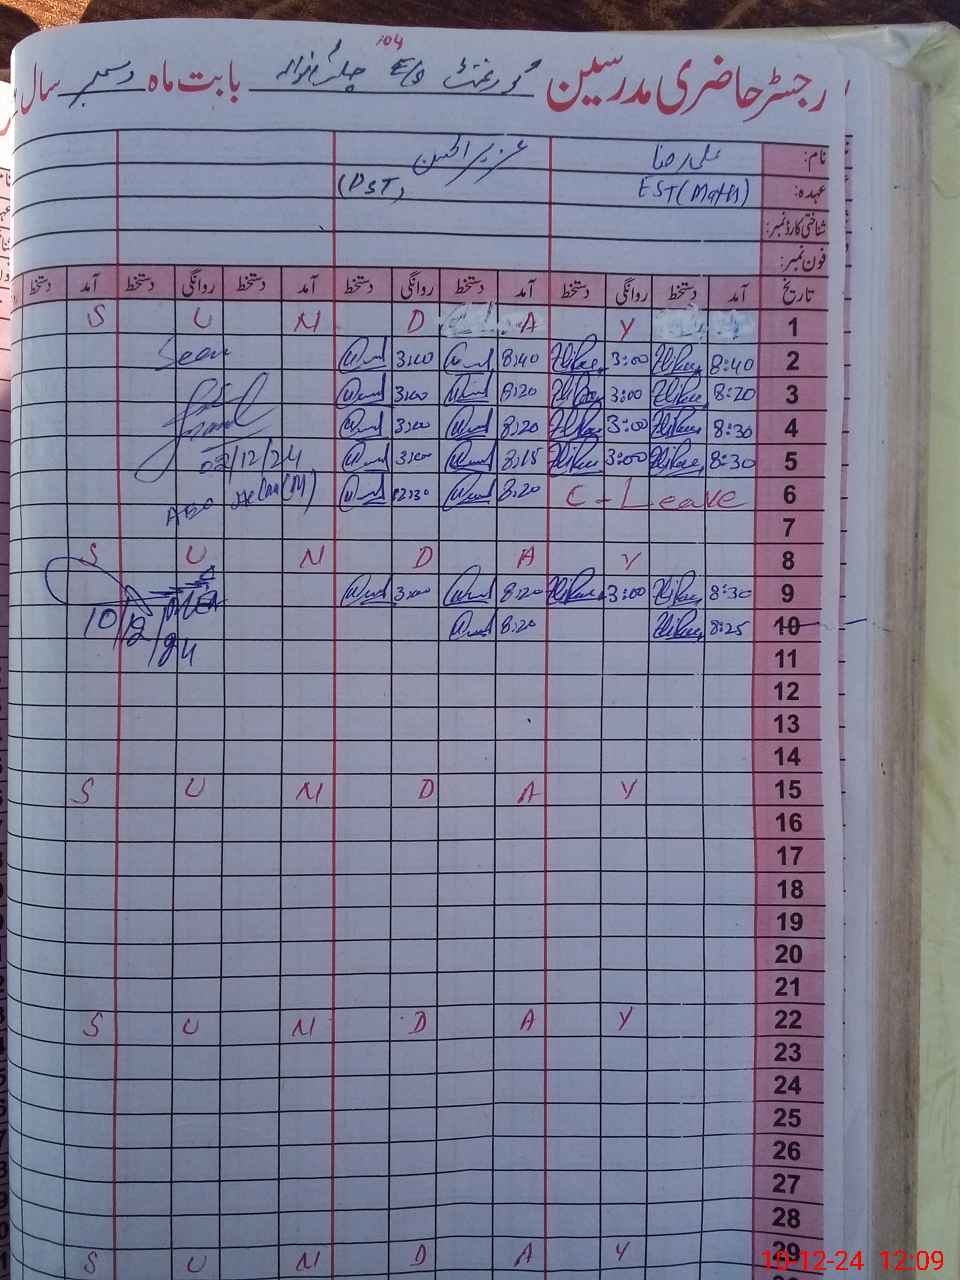 104
رجسٹر حاضری مدرسین گورنمنٹ E/S بابت ماہ دسمبر سال
نام: علی رضا عزیز الحسن
عہدہ: EST (Maths) (PST)
شناختی کارڈ نمبر:
فون نمبر:
تاریخ آمد دستخط روانگی دستخط آمد دستخط روانگی دستخط آمد دستخط روانگی دستخط آمد دستخط
1 S U N D A Y
2 8:40 3:00 8:40 3:00 Seen
3 8:20 3:00 8:20 3:00
4 8:30 3:00 8:20 3:00
5 8:30 3:00 8:15 3:00 02/12/24
6 C-Leave 8:20 12:30 AEO
7
8 S U N D A Y
9 8:30 3:00 8:20 3:00
10 8:25 8:20 10/12/24
11
12
13
14
15 S U N D A Y
16
17
18
19
20
21
22 S U N D A Y
23
24
25
26
27
28
29 S U N D A Y
10-12-24 12:09